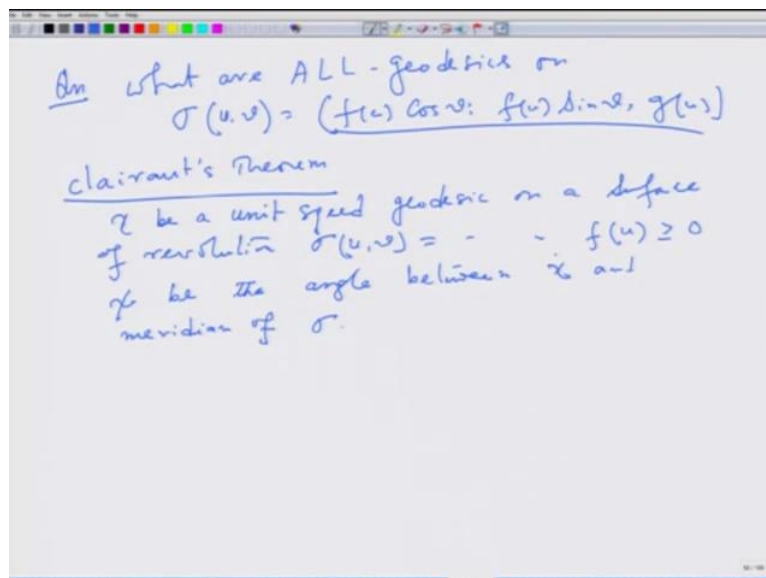 Qn What are ALL - geodesics on
σ(u,v) = (f(u) Cos v, f(u) Sin v, g(u))
Clairaut's Theorem
γ be a unit speed geodesic on a surface
of revolution σ(u,v) = - - f(u) ≥ 0
ψ be the angle between γ̇ and
meridian of σ.